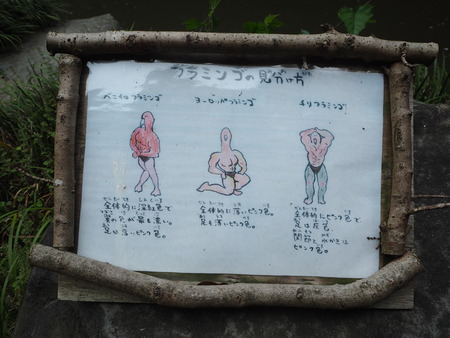 フラミンゴの見分け方
ベニイロフラミンゴ
ヨーロッパフラミンゴ
チリフラミンゴ
全体的に深紅色で
翼の色が最も濃い。
足は薄いピンク色。
全体的に薄いピンク色で
足も薄いピンク色。
全体的にピンク色で
足は灰色
関節と水かきは
ピンク色。